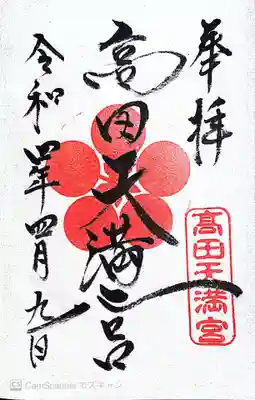 奉拝
髙田天満宮
高田天満宮
令和四年四月九日
CS CamScanner でスキャン